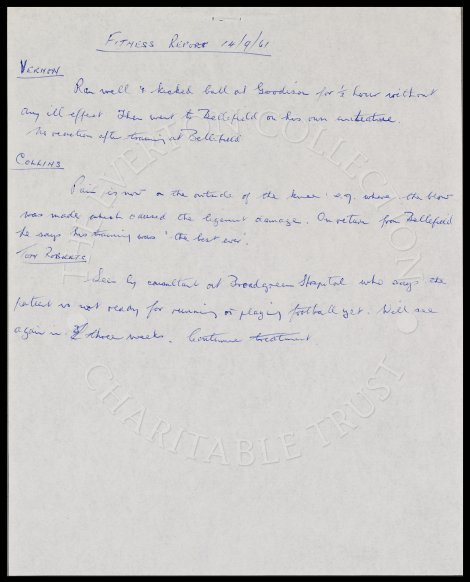 FITNESS REPORT 14/9/61
VERNON
Ran well & kicked ball at Goodison for ½ hour without
any ill effect Then went to Bellefield on his own initiative.
No reaction after training at Bellefield
COLLINS
Pain is now on the outside of the knee e.g. where the blow
was made which caused the ligament damage. On return from Bellefield
he says his training was 'the best ever'.
TOM ROBERTS
Seen by consultant at Broadgreen Hospital who says the
patient is not ready for running or playing football yet. Will see
again in three weeks. Continue treatment
THE EVERTON COLLECTION
CHARITABLE TRUST